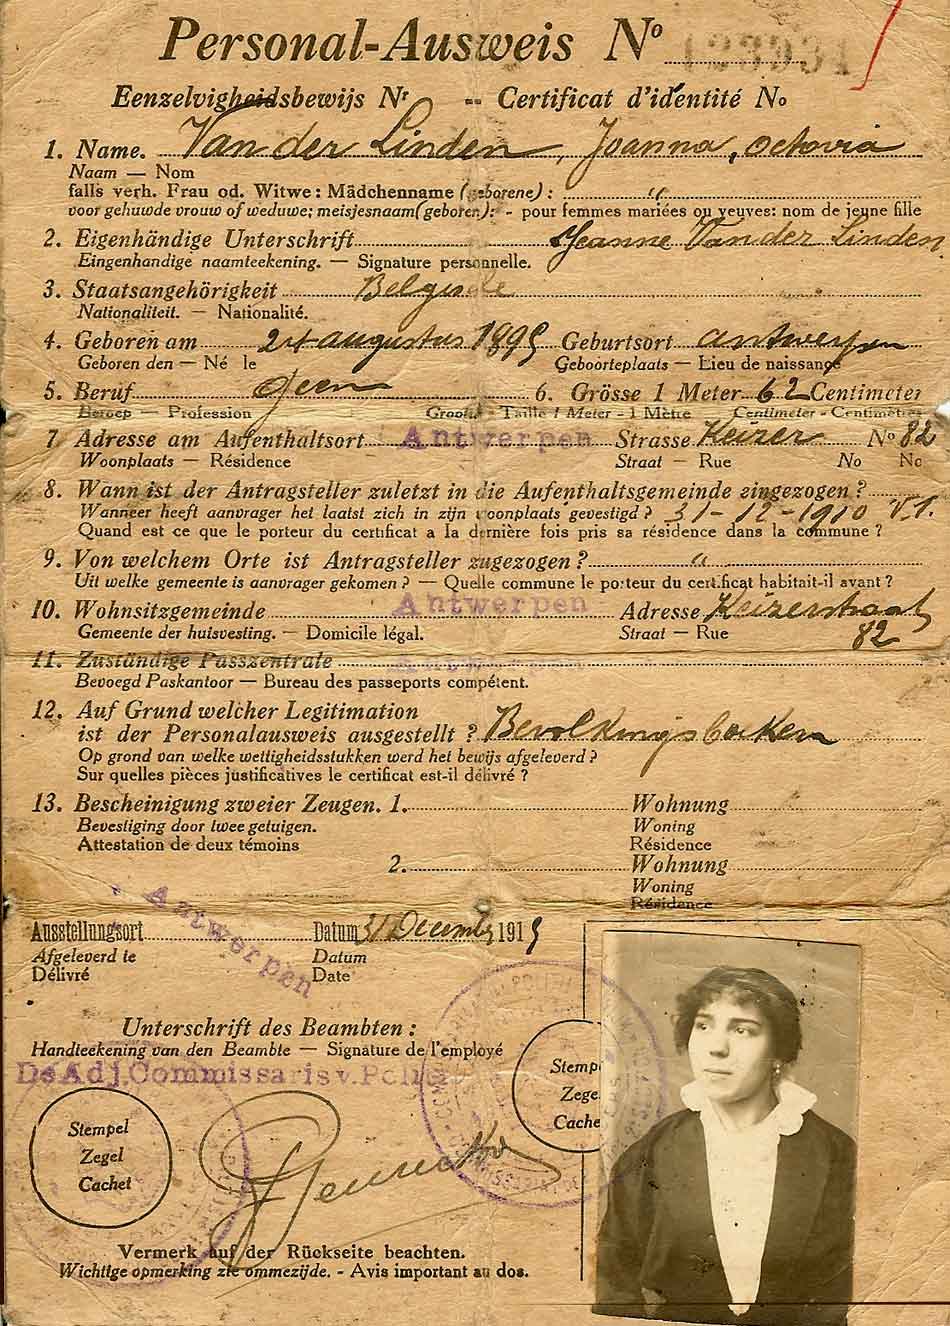 Personal-Ausweis No
Eenzelvigheidsbewijs Nr -- Certificat d'identité No
1. Name. Van der Linden, Joanna, Octovia
Naam — Nom
falls verh. Frau od. Witwe: Mädchenname (geborene): "
voor gehuwde vrouw of weduwe; meisjesnaam (geboren): - pour femmes mariées ou veuves: nom de jeune fille
2. Eigenhändige Unterschrift Jeanne Van der Linden
Eingenhandige naamteekening. — Signature personnelle.
3. Staatsangehörigkeit Belgische
Nationaliteit. — Nationalité.
4. Geboren am 24 augustus 1895 Geburtsort antwerpen
Geboren den — Né le Geboorteplaats — Lieu de naissance
5. Beruf geen 6. Grösse 1 Meter 62 Centimeter
Beroep — Profession Grootte - Taille 1 Meter - 1 Mètre Centimeter - Centimètres
7. Adresse am Aufenthaltsort Antwerpen Strasse Keizer No 82
Woonplaats — Résidence Straat — Rue No No
8. Wann ist der Antragsteller zuletzt in die Aufenthaltsgemeinde eingezogen?
Wanneer heeft aanvrager het laatst zich in zijn woonplaats gevestigd? 31-12-1910 V.T.
Quand est ce que le porteur du certificat a la dernière fois pris sa résidence dans la commune?
9. Von welchem Orte ist Antragsteller zugezogen? "
Uit welke gemeente is aanvrager gekomen? — Quelle commune le porteur du certificat habitait-il avant?
10. Wohnsitzgemeinde Antwerpen Adresse Keizerstraat
Gemeente der huisvesting. — Domicile légal. Straat — Rue 82
11. Zuständige Passzentrale Antwerpen
Bevoegd Paskantoor — Bureau des passeports compétent.
12. Auf Grund welcher Legitimation
ist der Personalausweis ausgestellt? Bevolkingsboeken
Op grond van welke wettigheidsstukken werd het bewijs afgeleverd?
Sur quelles pièces justificatives le certificat est-il délivré?
13. Bescheinigung zweier Zeugen. 1. Wohnung
Bevestiging door twee getuigen. Woning
Attestation de deux témoins Résidence
2. Wohnung
Woning
Résidence
Antwerpen
Ausstellungsort Datum 31 December 1915
Afgeleverd te Datum
Délivré Date
Unterschrift des Beambten:
Handteekening van den Beambte — Signature de l'employé
De Adj. Commissaris v. Politie
Stempel
Zegel
Cachet
Stempel
Zegel
Cachet
Vermerk auf der Rückseite beachten.
Wichtige opmerking zie ommezijde. - Avis important au dos.